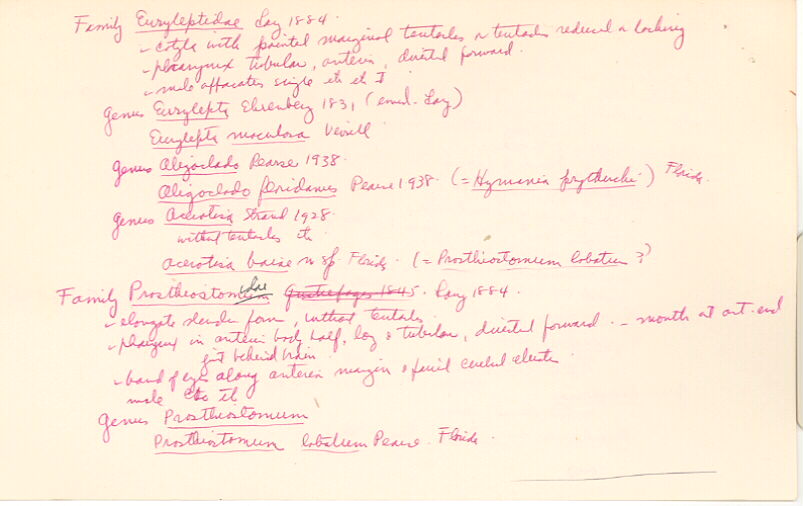 Family Euryleptidae Lang 1884.
- cotyla with pointed marginal tentacles or tentacles reduced or lacking
- pharynx tubular, anterior, directed forward.
- male apparatus single etc etc
Genus Eurylepta Ehrenberg 1831 (emend. Lang)
Eurylepta maculosa Verrill
Genus Oligoclado Pearse 1938.
Oligoclado floridanus Pearse 1938 (= Hymania prytherchi) Florida.
Genus Acerotisa Strand 1928.
without tentacles etc
Acerotisa baiae n sp. Florida. (= Prosthiostomum lobatum ?)
Family Prosthiostomidae Quatrefages 1845. Lang 1884.
- elongate slender form, without tentacles
- pharynx in anterior body half, long & tubular, directed forward. - mouth at ant. end
just behind brain.
- band of eyes along anterior margin & paired cerebral clusters
male etc
Genus Prosthiostomum
Prosthiostomum lobatum Pearse. Florida.